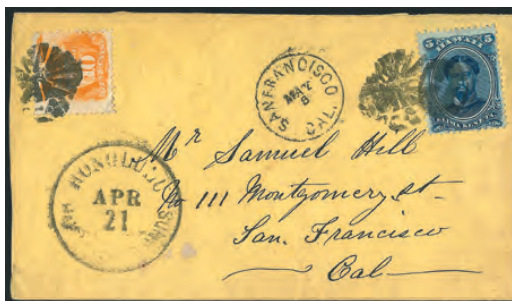 10
5 HAWAII 5
SAN FRANCISCO
MAY
CAL.
HONOLULU
APR
21
Mr Samuel Hill
No 111 Montgomery st.
San. Francisco
Cal